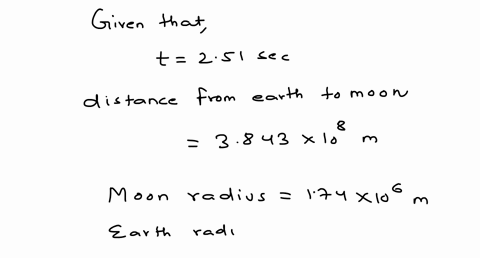 Given that,
t = 2.51 sec
distance from earth to moon
= 3.843 × 10⁸ m
Moon radius = 1.74 × 10⁶ m
Earth radi